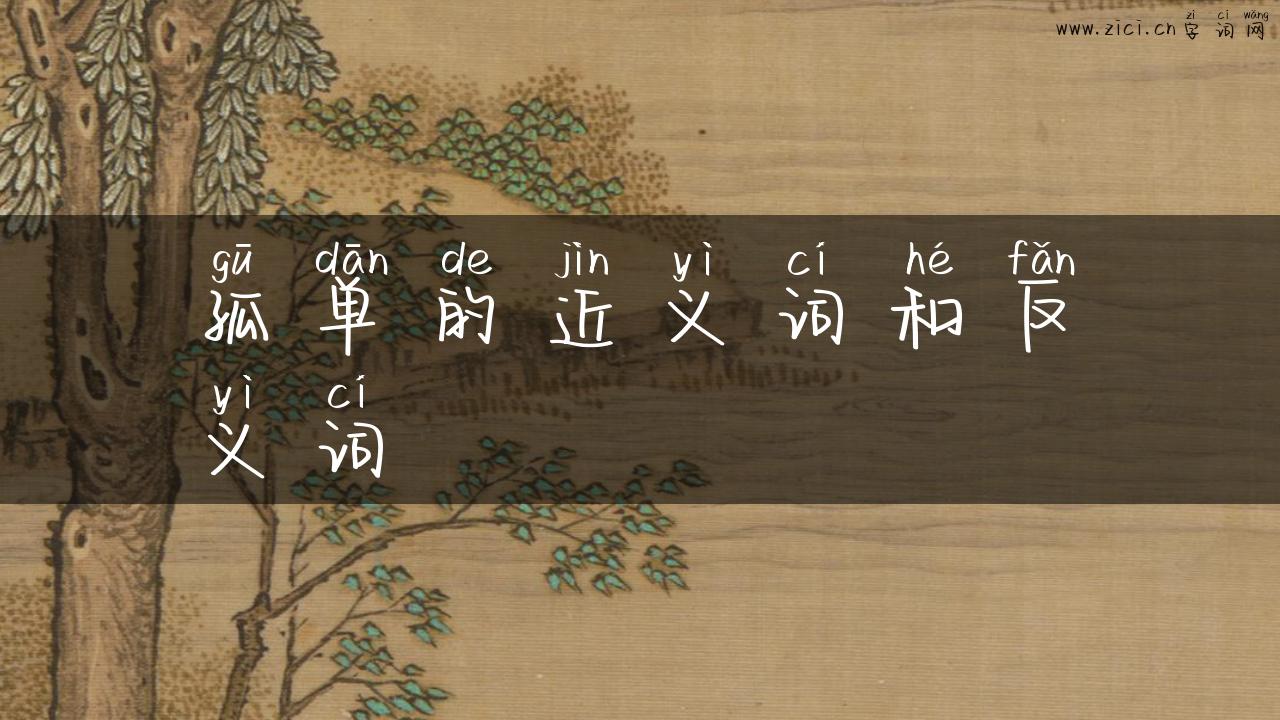 zì cí wǎng
www.zici.cn 字词网
gū dān de jìn yì cí hé fǎn
孤单的近义词和反
yì cí
义词